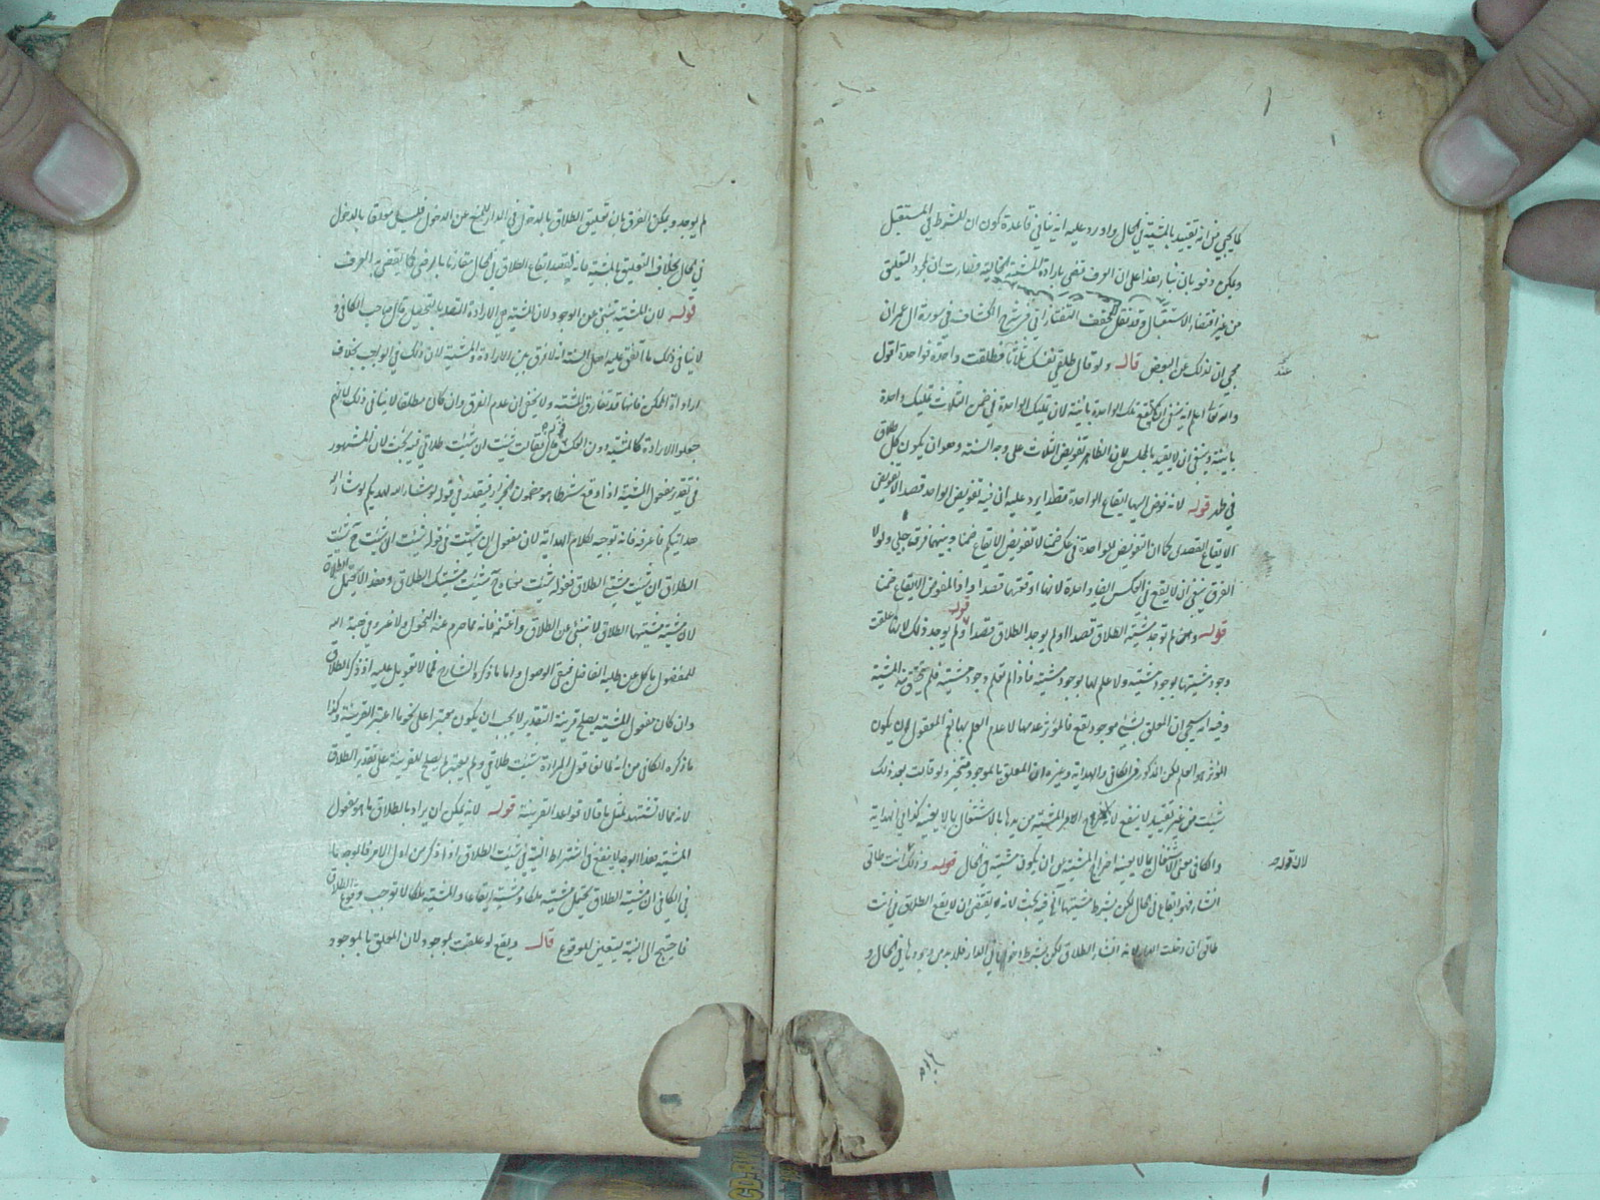 كما يجيئ من انه تقييد بالمشية في الحال واورد عليه انه ينافي قاعدة كون ان للشرط في المستقبل
ويمكن دفعه بان بناء هذا على ان العرف تقضي بارادة المشية الحالية فصارت ان لمجرد التعليق
من غير اقتضاء الاستقبال وقد نقل المحقق التفتازاني في شرح الكشاف في سورة ال عمران
مجيئ ان لذلك عن البعض قال ولو قال طلقي نفسك ثلاثا فطلقت واحدة فواحدة اقول
والله تعالى اعلم انه ينبغي ان تقع تلك الواحدة بائنة لان تمليك الواحدة في ضمن الثلاث تمليك واحدة
بائنة وينبغي ان لا يقيد بالمجلس لان الظاهر تفويض الثلاث على وجه السنة وهو ان يكون كل طلاق
في طهر قوله لانه فوض اليها ايقاع الواحدة قصدا يرد عليه ان فيه تفويض الواحد قصدا لا تفويض
الايقاع القصدي كما ان التفويض للواحدة في عكسه ضمنا لا تفويض الايقاع ضمنا وبينهما فرق جلي ولولا
الفرق ينبغي ان لا يقع في العكس ايضا واحدة لانها اوقعتها قصدا والمفوض الايقاع ضمنا
قوله وهي لم توجد مشية الطلاق قصدا اولم يوجد الطلاق قصدا قوله ولم يوجد ذلك لانها علقت
وجود مشيتها بوجود مشيته ولا علم لها بوجود مشيته فاذا لم تعلم وجود مشيته فلم يتحقق منها المشية
وفيه انه سيجئ ان المعلق بشيئ موجود يقع فالمؤثر عدمها لا عدم العلم بها نعم المعقول ان يكون
المؤثر هو العلم لكن المذكور في الكافي والهداية وغيره ان المعلق بالموجود منجز ولو قالت بعد ذلك
شئت من غير تقييد لا ينفع لانه خرج الامر المشية من يدها بالاشتغال بما لا يعنيه كذا في الهداية
والكافي معنى الاشتغال بما لا يعنيه اخراج المشية من ان يكون مشية في الحال قوله وذلك انت طالق
انشاء فهو ايقاع في الحال لكن بشرط مشيتها آه فيه بحث لانه يقتضي ان لا يقع الطلاق في انت
طالق ان دخلت الدار لانه انشاء الطلاق لكن بشرط دخولها في الدار فلا بد من وجودها في الحال و
عند
لان قوله
لم يوجد ويمكن الفرق بان تعليق الطلاق بالدخول في الدار للمنع عن الدخول فليس موقعا بالدخول
في الحال بخلاف التعليق بالمشية فانه لقصد ايقاع الطلاق في الحال مقارنا بالرضى كما يقضي به العرف
قوله لان المشية تنبئ عن الوجود لان المشية هي الارادة القصد بالتحصيل قال صاحب الكافي و
لا ينافي ذلك ما اتفق عليه اهل السنة انه لا فرق بين الارادة والمشية لان ذلك في الواجب بخلاف
ارادة الممكن فانها قد تفارق المشية ولا يخفى ان عدم الفرق وان كان مطلقا لا ينافي ذلك لانهم
جعلوا الارادة كالمشية دون العكس قوله فقالت شئت ان شئت طلاقي فيه بحث لان المشهور
في تقدير مفعول المشية اذا وقع شرطا هو مضمون الجزاء فيقدر في قوله لو شاء الله لهديكم لو شاء الله
هدايتكم فاعرفه فانه توجيه لكلام الهداية لان مفعول ان شئت في قوله شئت ان شئت ح شئت
الطلاق ان شئت مشية الطلاق فقوله شئت معناه ح شئت مشيتك الطلاق وهذا لا يحتمل الطلاق
لان مشية مشيتها الطلاق لا تنبئ عن الطلاق واغتنمه فانه مما حرم عنه الفحول ولا غرو في هبة الله
للمفضول ما كل عن طلبه الفاضل فبقي الوصول واما ما ذكره الشارح فمما لا تعويل عليه اذ ذكر الطلاق
وان كان مفعول المشية يصلح قرينة التقدير لا يجب ان يكون معتبرا على نحو ما اعتبر القرينة وكذا
ما ذكره الكافي من انه يخالف قول المرأة شئت طلاقي ولم يعتبر ما يصلح للقرينة على تقدير الطلاق
لانه مما لا تشتهد لمثل ما قالا قواعد القرينة قوله لانه يمكن ان يراد بالطلاق ما هو مفعول
المشية هذا الوجه لا ينفع في اشتراط النية في شئت الطلاق اذا ذكر من اول الامر فالوجه ما
في الكافي ان مشية الطلاق يحتمل مشية ملكا ومشية ايقاعا والمشية ملكا لا توجب وقوع الطلاق
فاحتيج الى النية يتعين للوقوع قال ويقع لو علقت بموجود لان المعلق بالموجود